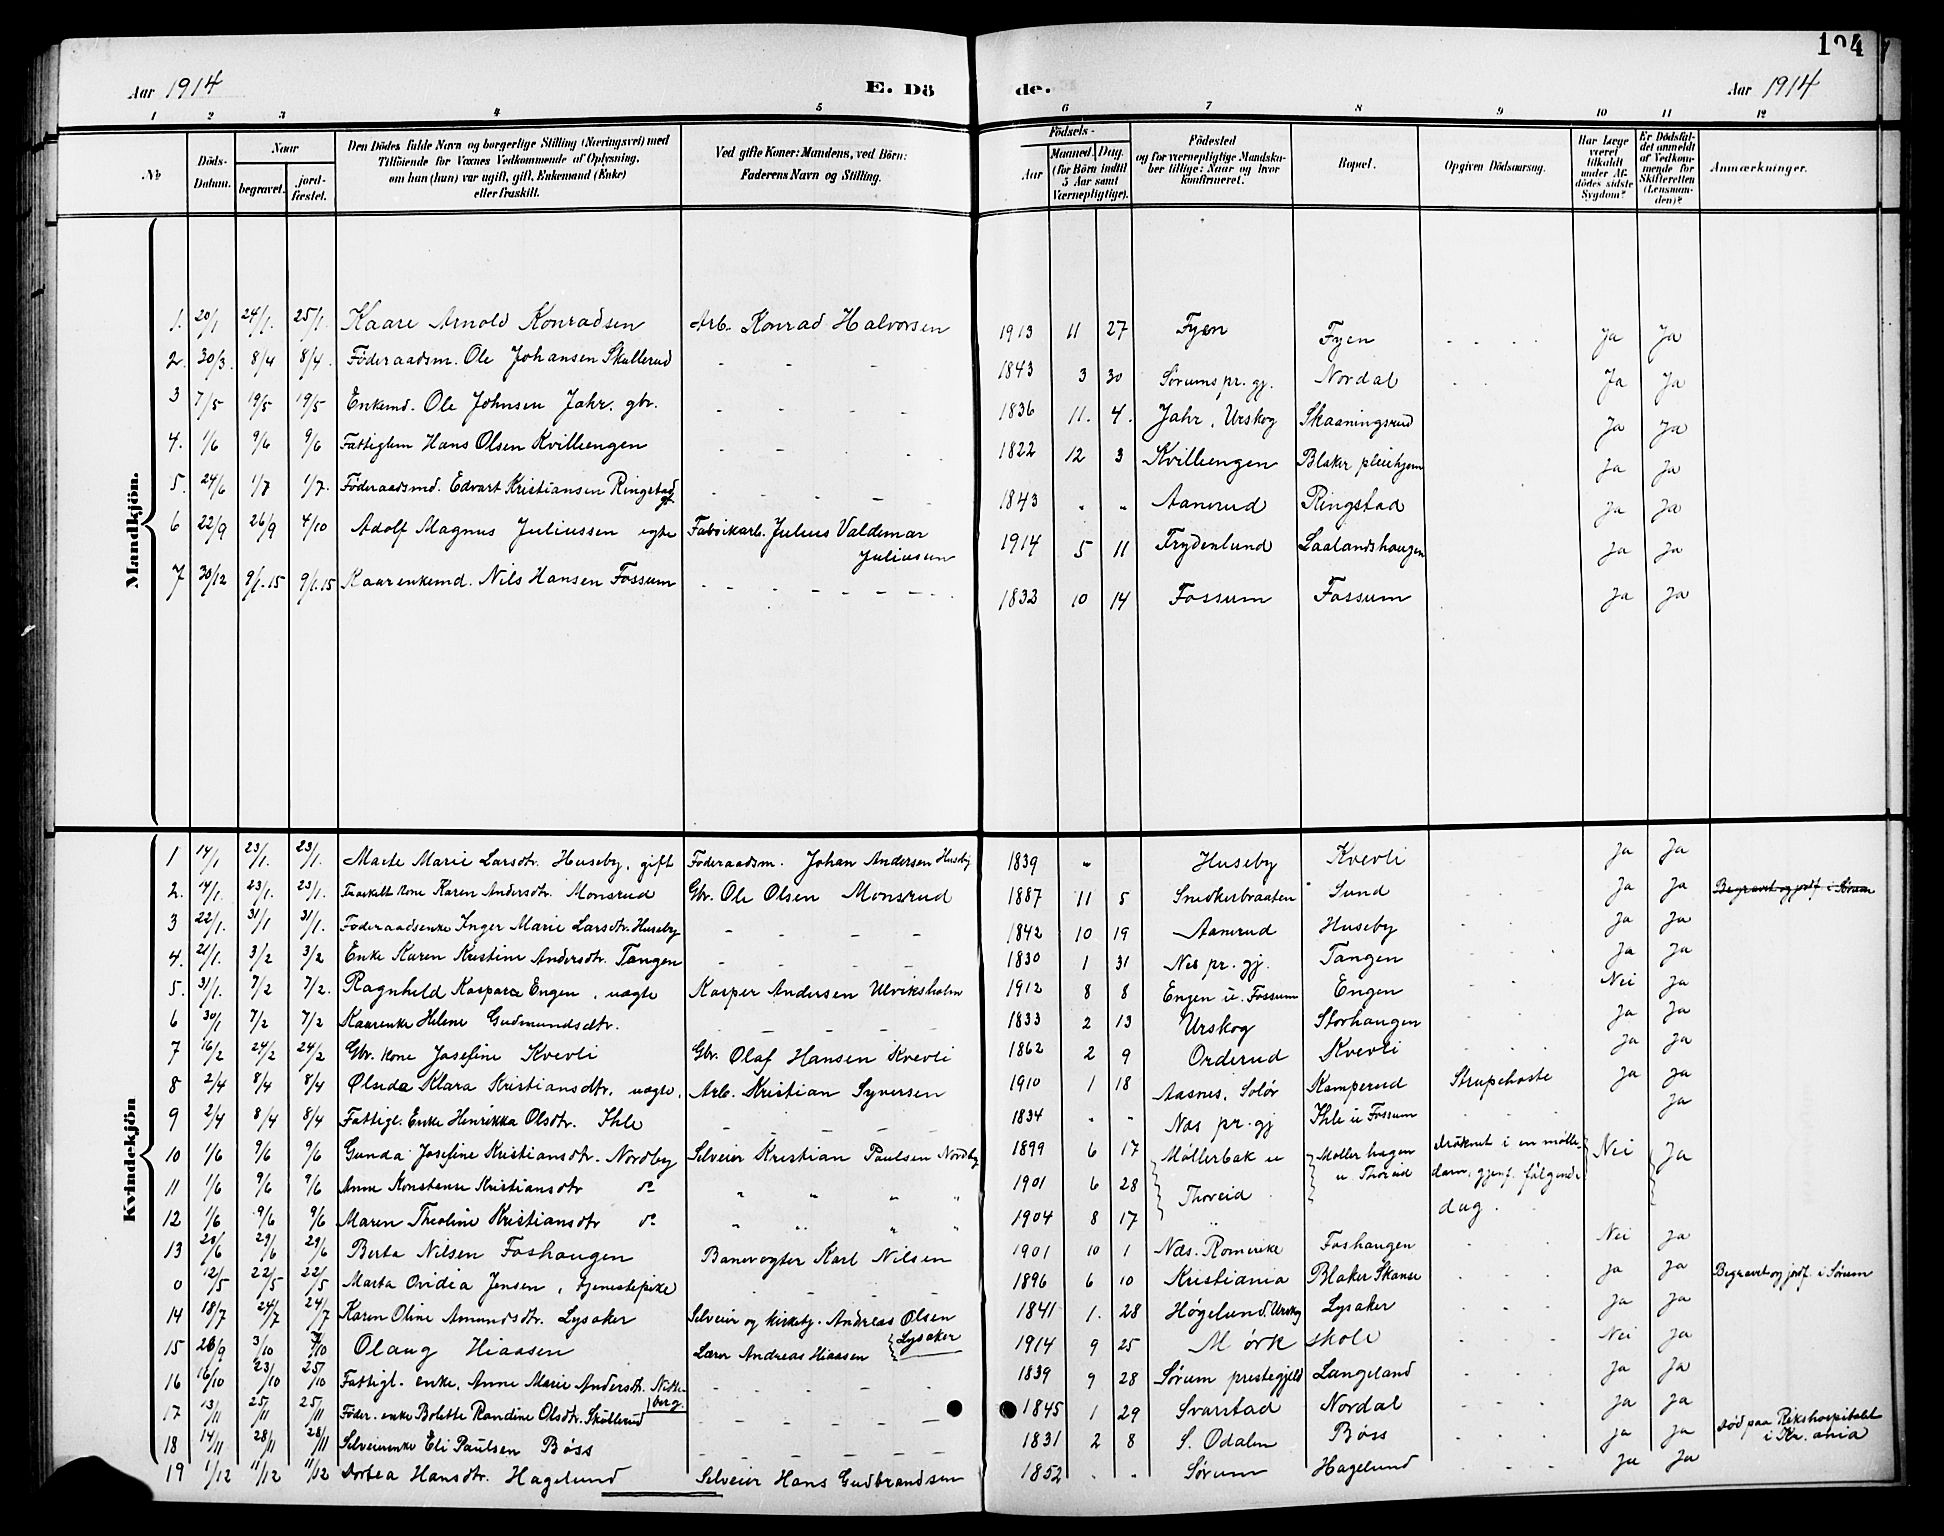 104
Aar 1914 E. Dö de. Aar 1914
1 2 3 4 5 6 7 8 9 10 11 12
No
Döds-Datum.
Naar
begravet.
jord-fæstet.
Den Dödes fulde Navn og borgerlige Stilling (Næringsvei) med
Tilföiende for Voxnes Vedkommende af Oplysning,
om han (hun) var ugift, gift, Enkemand (Enke)
eller fraskilt.
Ved gifte Koner: Mandens, ved Börn:
Faderens Navn og Stilling.
Födsels-
Aar
Maaned. Dag.
(for Börn indtil
5 Aar samt
Værnepligtige).
Födested
og for værnepligtige Mandska-
ber tillige: Naar og hvor
konfirmeret.
Bopæl.
Opgiven Dödsaarsag.
Har Læge
været
tilkaldt
under Af-
dödes sidste
Sygdom?
Er Dödsfal-
det anmeldt
af Vedkom-
mende for
Skifteretten
(Lensman-
den)?
Anmærkninger.
Mandkjön.
1. 20/1 24/1. 25/1. Kaare Arnold Konradsen Arb. Konrad Halvorsen 1913 11 27 Fyen Fyen Ja Ja
2. 30/3. 8/4 8/4. Föderaadsm. Ole Johansen Skullerud 1843 3 30 Sørums pr. gj. Nordal Ja Ja
3 7/5 19/5 19/5 Enkemd. Ole Johnsen Jahr. gbr. 1836 11. 4. Jahr, Urskog Skaaningsrud Ja Ja
4. 1/6 9/6 9/6 Fattiglem Hans Olsen Kvillengen 1822 12 3 Kvillengen Blaker pleiehjem Ja Ja
5. 24/6 1/7 1/7. Föderaadsmd. Edvart Kristiansen Ringstad 1843 " " Aanerud Ringstad Ja Ja
6 22/9 26/9 4/10 Adolf Magnus Juliussen egte Fabrikarb. Julius Valdemar
Juliusen 1914 5 11 Frydenlund Laalandshaugen Ja Ja
7 30/12 9/1.15 9/1.15 Kaarenkemd. Nils Hansen Fossum 1833 10 14 Fossum Fossum Ja Ja
Kvindekjön
1 14/1 23/1. 23/1. Marte Marie Larsdtr. Huseby, gift Föderaadsm. Johan Andersen Huseby 1839 " Huseby Kvevli Ja Ja
2. 14/1. 23/1. 23/1. Fraskilt kone Karen Andersdtr. Monsrud Gbr. Ole Olsen Monsrud 1887 11 5 Snedkerbraaten Sund Ja Ja Begravet og jordf. i Sørum
3 22/1. 31/1 31/1. Föderaadsenke Inger Marie Larsdtr. Huseby 1842 10 19 Aanerud Huseby Ja Ja
4. 21/1. 3/2 3/2 Enke Karen Kristine Andersdtr. Tangen 1830 1 31 Nes pr. gj. Tangen Ja Ja
5. 31/1. 7/2 7/2. Ragnhild Kaspara Engen, uægte Kasper Andersen Ulviksholm 1912 8 8 Engen u. Fossum Engen Nei Ja
6 30/1 7/2 7/2 Kaarenke Helene Gudmundsdtr. 1833 2 13 Urskog Storhaugen Ja Ja
7 16/2 24/2 24/2 Gbr. kone Josefine Kvevli Gbr. Olaf Hansen Kvevli 1862 2 9 Orderud Kvevli Ja Ja
8 2/4 8/4 8/4 Olseda Klara Kristiansdtr, uægte. Arb. Kristian Syversen 1910 1 18 Aasnes, Solør Kamperud Strupehoste Ja Ja
9 2/4 8/4 8/4 Fattigl. Enke Henrikka Olsdtr. Ihle 1834 " " Nas pr. gj Ihle u Fossum Ja
10 1/6 9/6 9/6 Gunda Josefine Kristiansdtr. Nordby Selveier Kristian Paulsen Nordby 1899 6 17 Møllerbak u Møller hagen druknet i en mølle- Nei Ja
11 1/6 9/6 9/6 Anne Konstanse Kristiansdtr do " " " " 1901 6 28 Thoreid u Thoreid dam, gjenf. følgende
12 1/6 9/6 9/6 Maren Theoline Kristiansdtr do " " " " 1904 8 17 dag.
13 20/6 29/6 29/6 Berta Nilsen Foshaugen Banevogter Karl Nilsen 1901 10 1 Nds. Romerike Foshaugen Nei Ja
0 12/5 22/5 22/5 Marta Ovidia Jensen, tjenestepike 1896 6 10 Kristiania Blaker Skanse Ja Ja Begravet og jordf. i Sørum
14 18/7 24/7 24/7 Karen Oline Amundsdtr. Lysaker Selveier og kirketj. Andreas Olsen
Lysaker 1841 1. 28 Høgelund. Urskog Lysaker Ja Ja
15 26/9 3/10 3/10 Olaug Hiaasen Lærer Andreas Hiaasen 1914 9 25 Mørk skole Nei Ja
16 16/10 23/10 25/10 Fattigl. enke, Anne Marie Andersdtr. Nitte-
berg 1839 9 28 Sørum prestegjeld Langeland Ja Ja
17 13/11 25/11 25/11 Föder. enke Bolette Randine Olsdtr. Skullerud 1845 1 29 Svarstad Nordal Ja Ja
18 14/11 28/11 28/11 Selveierenke Eli Paulsen Bøss 1831 2 8 S. Odalen Bøss Ja Ja død paa Rikshospitalet
i Kr. ania
19 1/12 11/12 11/12 Dortea Hansdtr. Hagelund Selveier Hans Gudbrandsen 1852 " " Sørum Hagelund Ja Ja